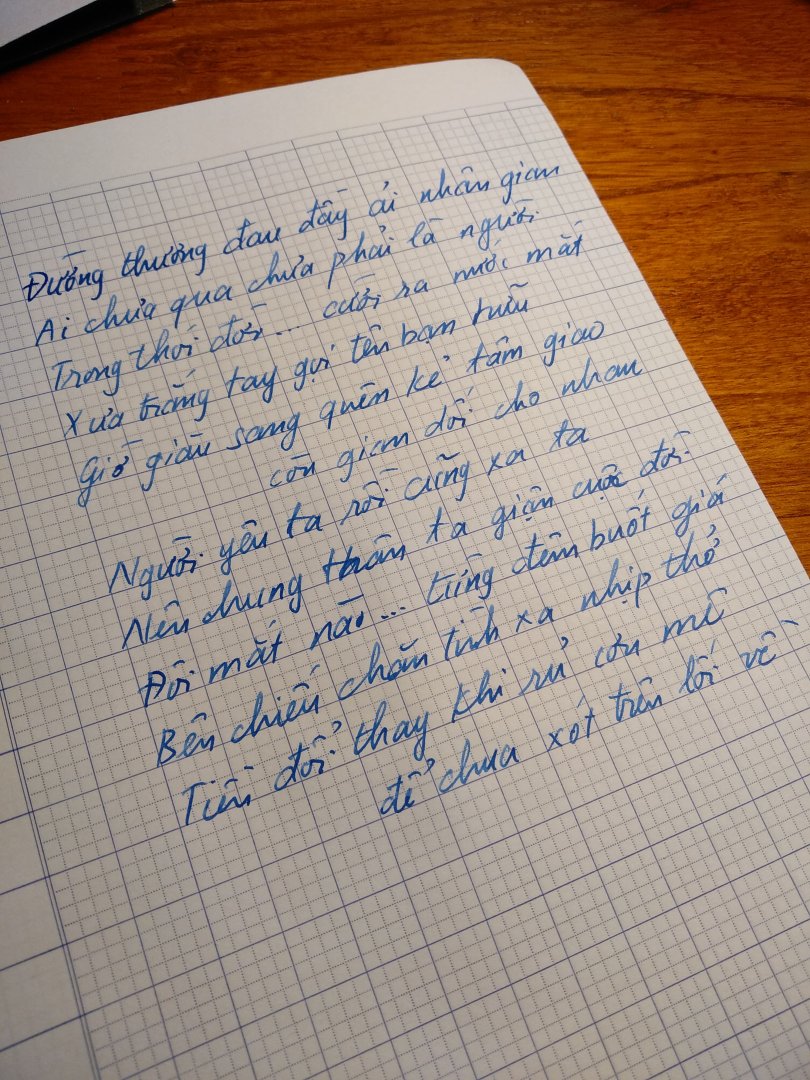 Đường thương đau đầy ải nhân gian
Ai chưa qua chưa phải là người
Trong thói đời... cười ra nước mắt
Xưa trắng tay gọi tên bạn rượu
Giờ giàu sang quên kẻ tâm giao
còn gian dối cho nhau
Người yêu ta rồi cũng xa ta
Nên chung thân ta giận cuộc đời
Đôi mắt nào... từng đêm buốt giá
Bên chiếu chăn tình xa nhịp thở
Tiền đổi thay khi rủ cơn mê
để chua xót trên lối về